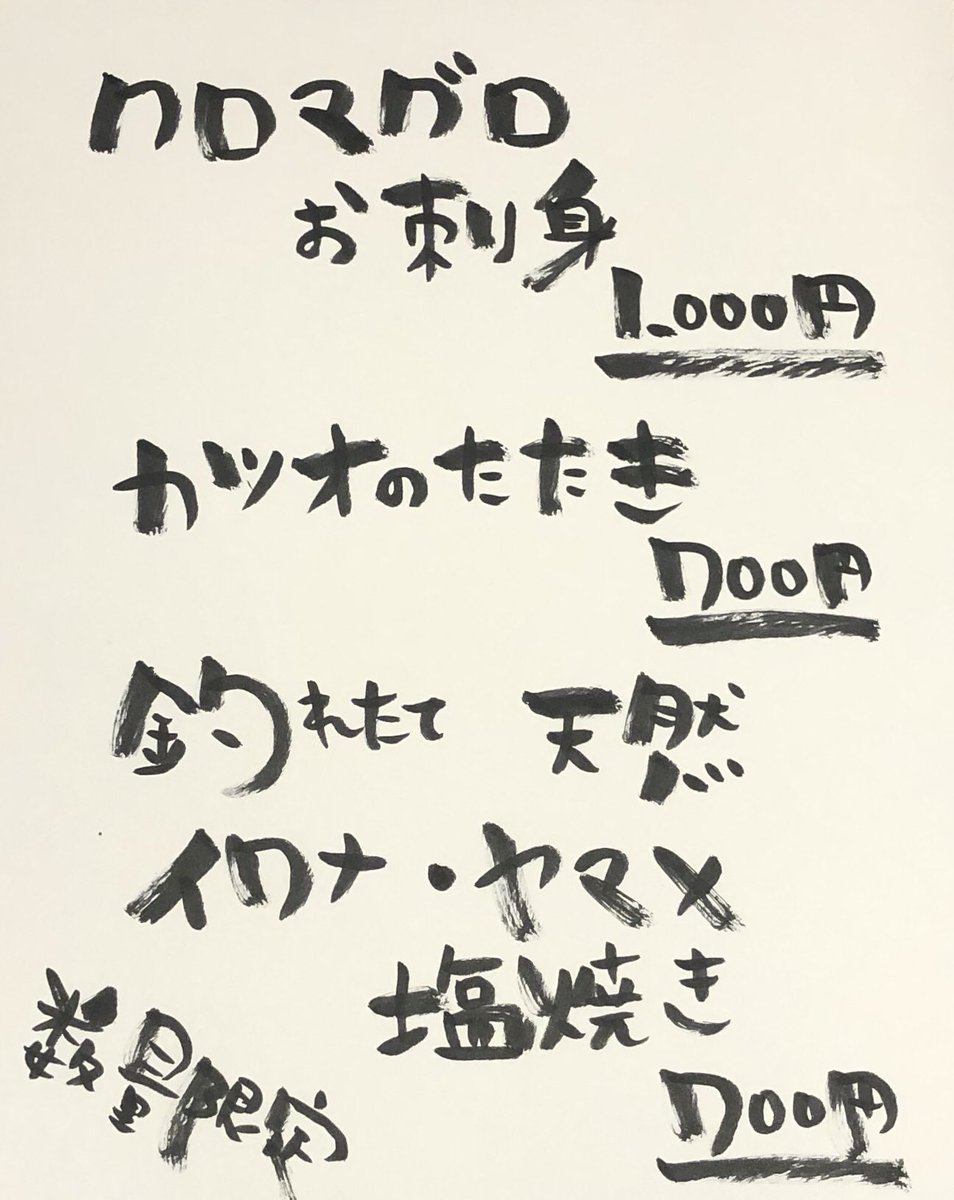 クロマグロ
お刺身
1.000円
カツオのたたき
700円
釣れたて 天然
イワナ・ヤマメ
塩焼き
数量限定
700円